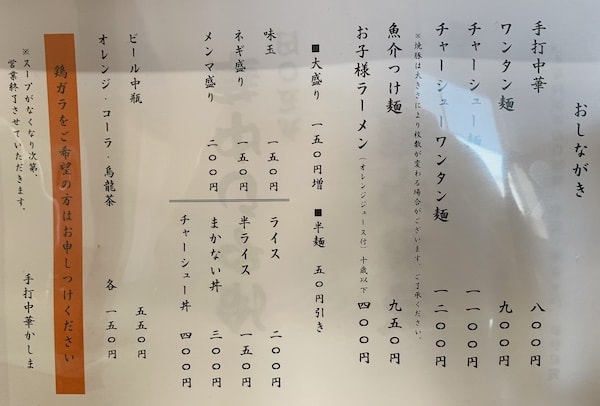 おしながき
手打中華 八〇〇円
ワンタン麺 九〇〇円
チャーシュー麺 一一〇〇円
チャーシューワンタン麺 一二〇〇円
※焼豚は大きさにより枚数が変わる場合がございます。ご了承ください。
魚介つけ麺 九五〇円
お子様ラーメン（オレンジジュース付）十歳以下 四〇〇円
■大盛り 一五〇円増 ■半麺 五〇円引き
味玉 一五〇円
ネギ盛り 一五〇円
メンマ盛り 二〇〇円
ライス 二〇〇円
半ライス 一五〇円
まかない丼 三〇〇円
チャーシュー丼 四〇〇円
ビール中瓶 五五〇円
オレンジ・コーラ・烏龍茶 各一五〇円
鶏ガラをご希望の方はお申しつけください
※スープがなくなり次第、
営業終了させていただきます。
手打中華かしま